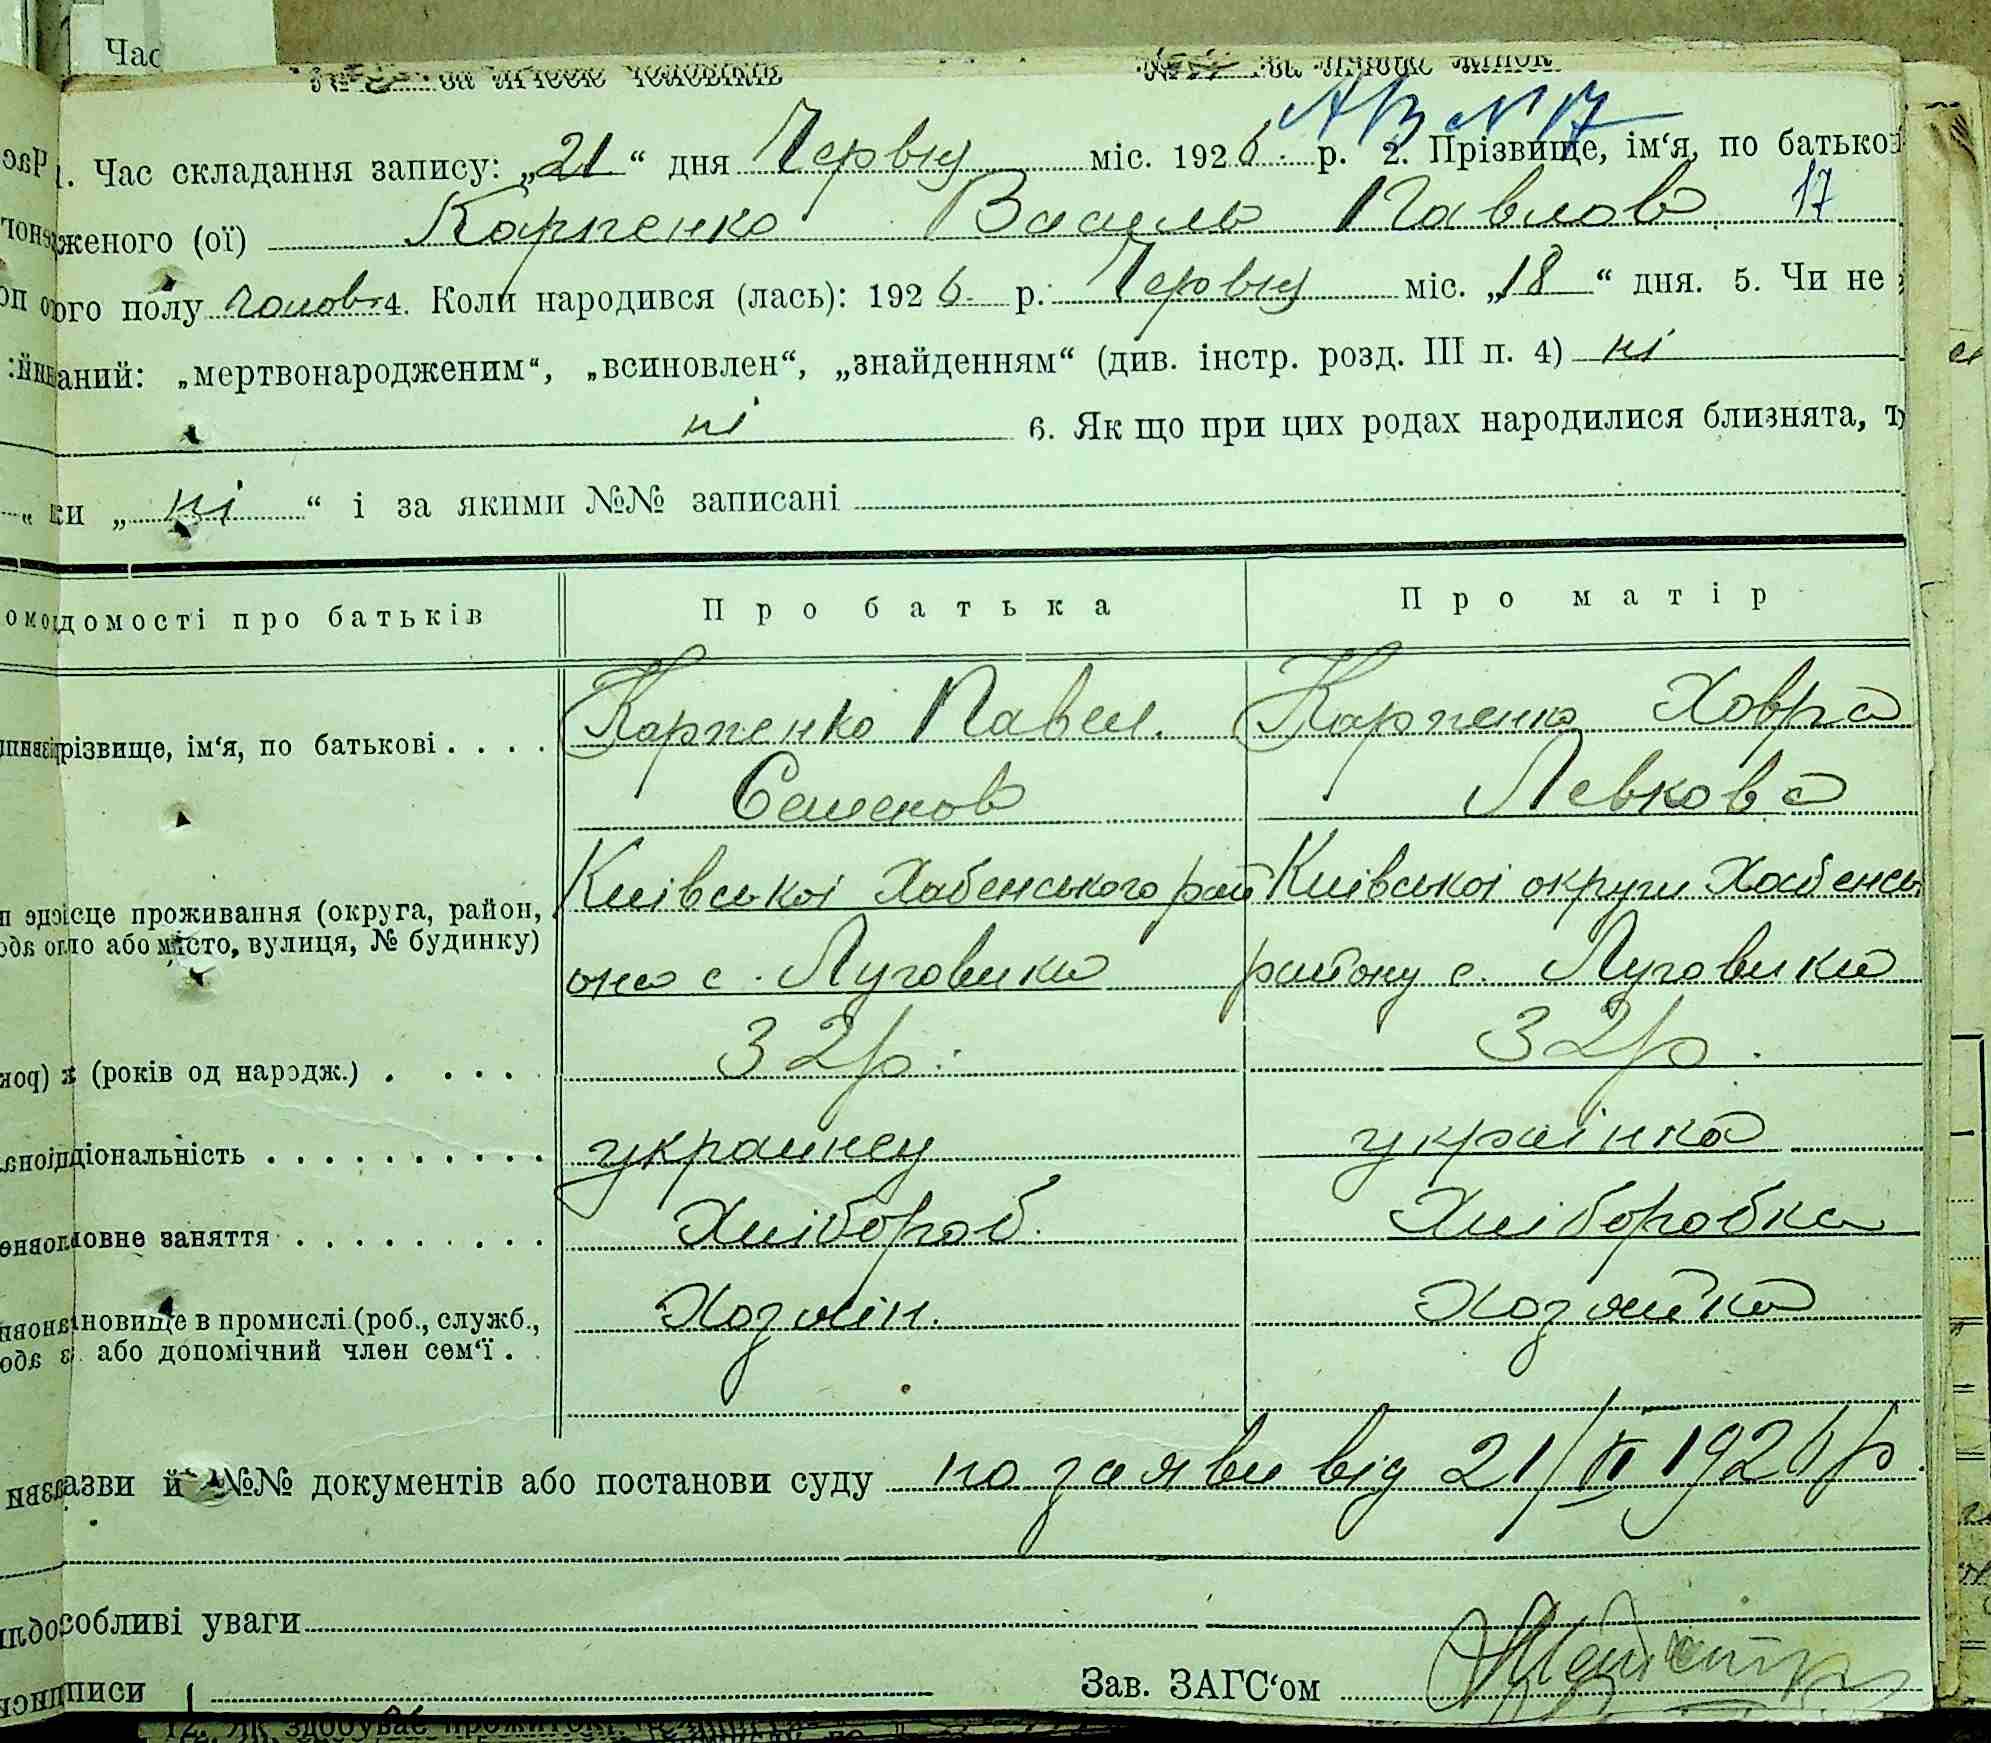 Час
за числом чоловіків за числом жінок
АВ № 17
1. Час складання запису: „21“ дня Червня міс. 1926 р. 2. Прізвище, ім‘я, по батькові
женого (ої) Карпенко Василь Павлов 17
ого полу чолов. 4. Коли народився (лась): 1926 р. Червня міс. „18“ дня. 5. Чи не
аний: „мертвонародженим“, „всиновлен“, „знайденням“ (див. інстр. розд. III п. 4) ні
ні 6. Як що при цих родах народилися близнята,
ки „ні“ і за якими №№ записані
домості про батьків Про батька Про матір
різвище, ім‘я, по батькові . . . . Карпенко Павел. Карпенко Ховра
Семенов Левкова
ісце проживання (округа, район, Київської Хабенського рай Київської округи Хабенсь
ло або місто, вулиця, № будинку) она с. Луговики району с. Луговики
(років од народж.) . . . . 32 р. 32 р.
ціональність . . . . . . . . . . украинец українка
овне заняття . . . . . . . . . Хлібороб. Хліборобка
новище в промислі (роб., служб., Хозяін. Хозяйка
або допомічний член сем‘ї .
азви й №№ документів або постанови суду по заяви від 21/VI 1926 р.
собливі уваги
писи Зав. ЗАГС‘ом
12. Як здобуває прожиток